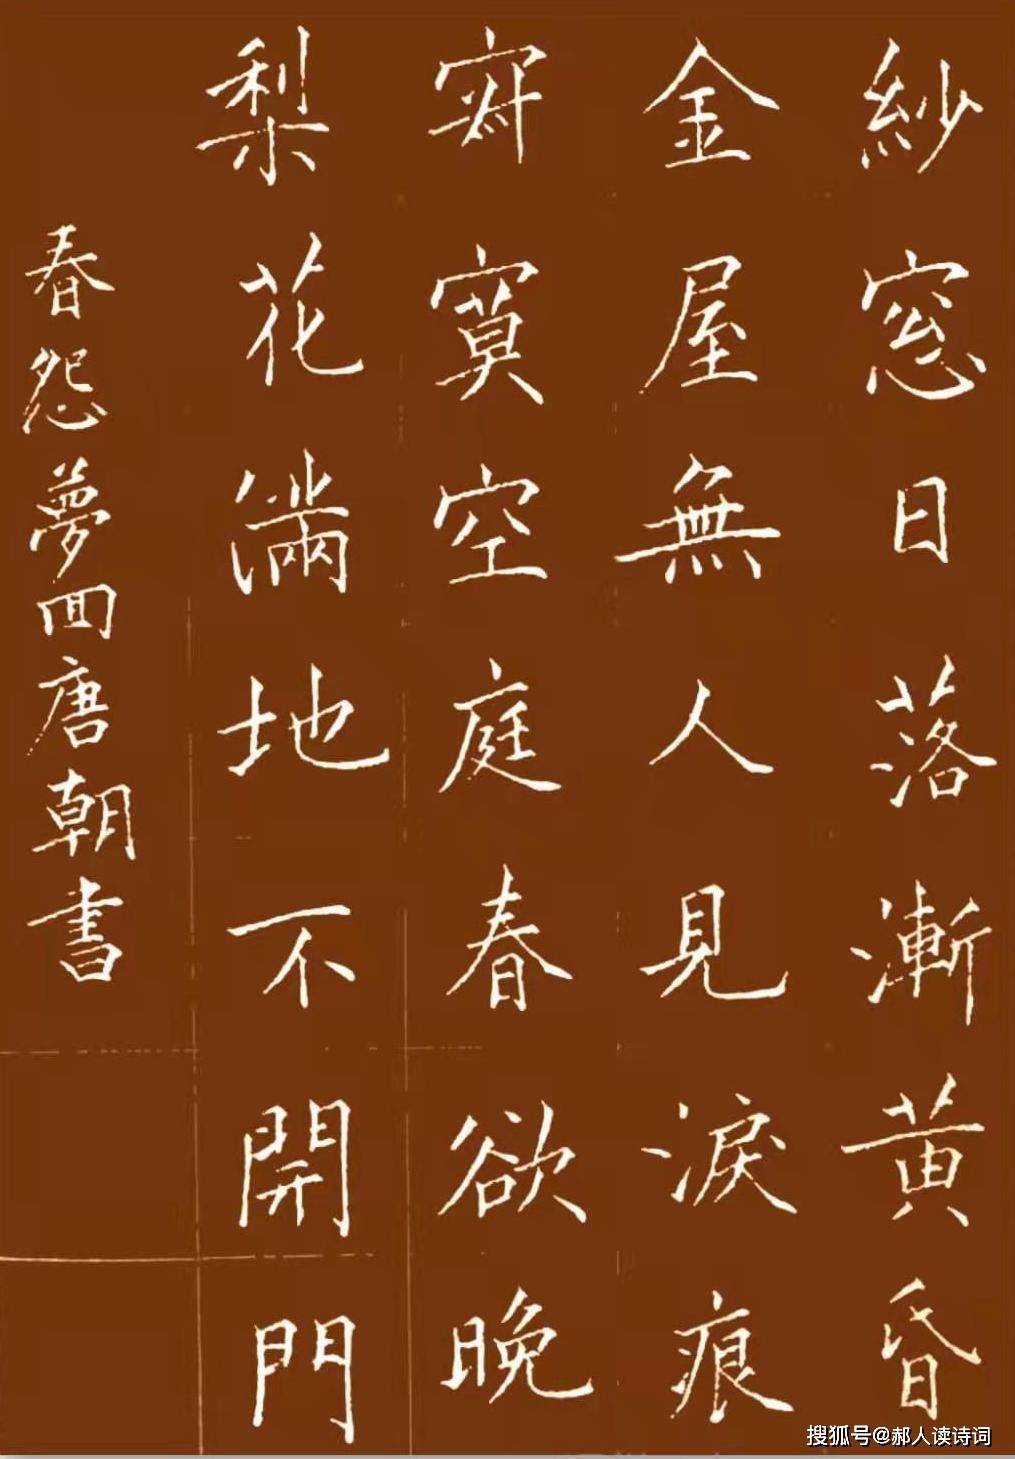 紗窓日落漸黄昏
金屋無人見淚痕
寂寞空庭春欲晚
梨花滿地不開門
春怨夢回唐朝書
搜狐号@郝人读诗词